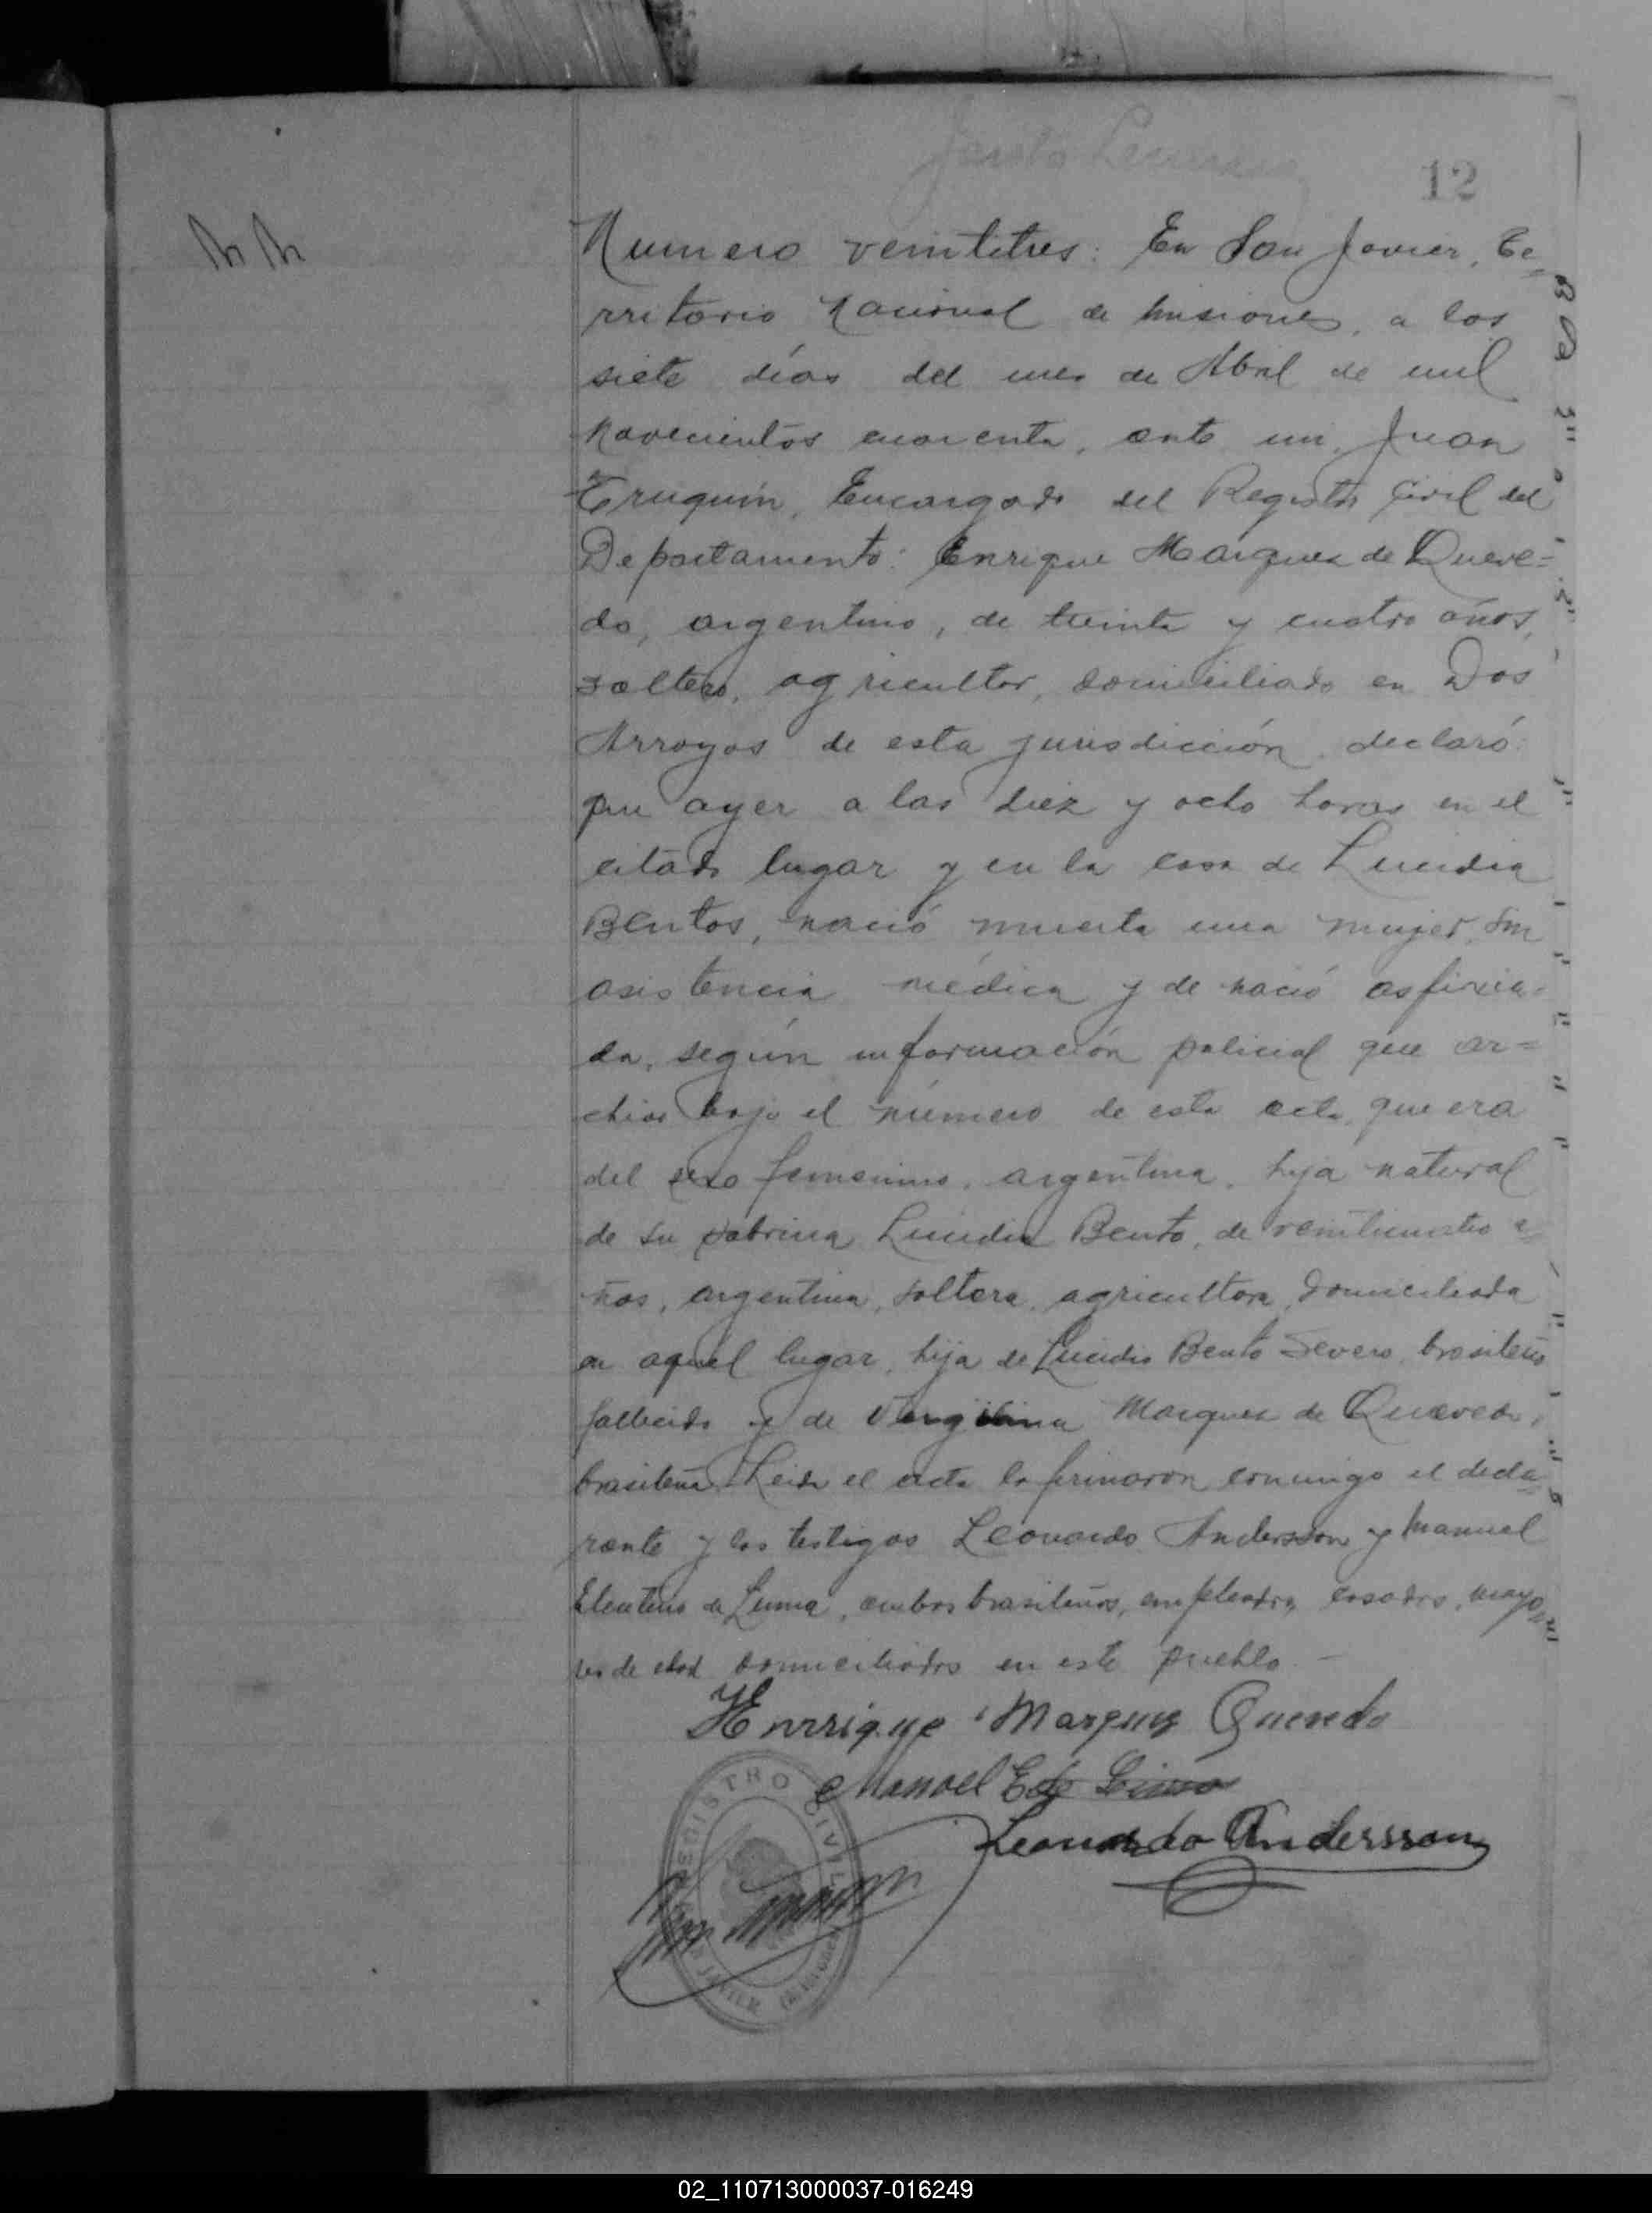 12
NN
Numero veintitres: En San Javier, Te=
rritorio Nacional de Misiones, a los
siete días del mes de Abril de mil
novecientos cuarenta, ante mi, Juan
Truquin, Encargado del Registro Civil del
Departamento: Enrique Marques de Queve=
do, argentino, de treinta y cuatro años,
soltero, agricultor, domiciliado en Dos
Arroyos de esta jurisdicción, declaró:
que ayer a las diez y ocho horas en el
citado lugar y en la casa de Lucidia
Bentos, nació muerta una mujer, sin
asistencia médica y de nació asfixia=
da, según información policial que ar=
chivo bajo el número de esta acta, que era
del sexo femenino, argentina, hija natural
de su sobrina Lucidia Bento, de veinticuatro a=
ños, argentina, soltera, agricultora, domiciliada
en aquel lugar, hija de Lucidio Bento Severo, brasileño
fallecido y de Virgilina Marques de Quevedo,
brasileña. Leida el acta la firmaron conmigo el decla=
rante y los testigos Leonardo Andersson y Manuel
Eleuterio de Lima, ambos brasileños, empleados, casados, mayo=
res de edad domiciliados en este pueblo.-
Henrrique Marques Quevedo
Manoel E de Lima
Leonardo Andersson
REGISTRO CIVIL
JAVIER
02_110713000037-016249